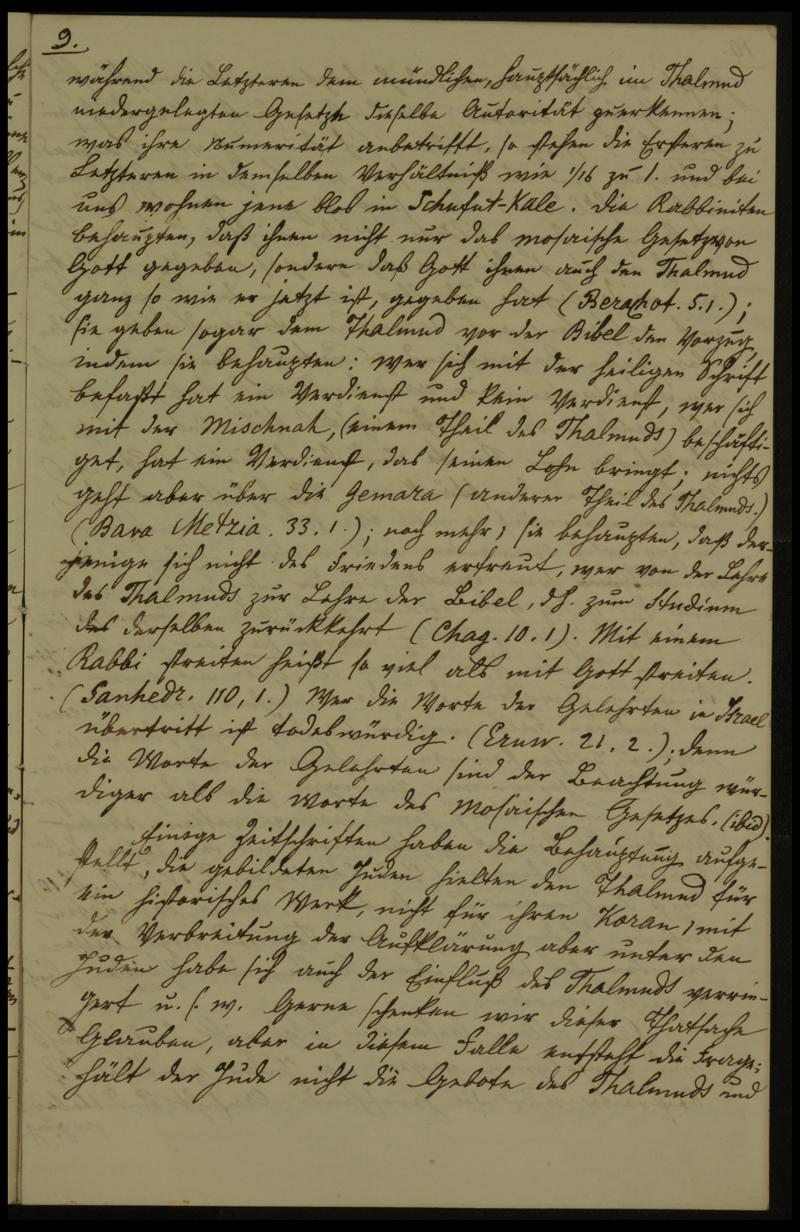 9.
während die Letzteren dem mündlichen, hauptsächlich im Thalmud
niedergelegten Gesetze dieselbe Autorität zuerkennen;
was ihre Numerität anbetrifft, so stehen die Ersteren zu
Letzteren in demselben Verhältniß wie 1/16 zu 1. und bei
uns wohnen jene blos in Schufut-Kale. Die Rabbiniten
behaupten, daß ihnen nicht nur das mosaische Gesetz von
Gott gegeben, sondern daß Gott ihnen auch den Thalmud
ganz so wie er jetzt ist, gegeben hat (Berachot. 5.1.);
sie geben sogar dem Thalmud vor der Bibel den Vorzug,
indem sie behaupten: wer sich mit der heiligen Schrift
befaßt hat ein Verdienst und kein Verdienst, wer sich
mit der Mischnah, (einem Theil des Thalmuds) beschäfti-
get, hat ein Verdienst, das seinen Lohn bringt; nichts
geht aber über die Gemara (anderer Theil des Thalmuds.)
(Bava Metzia. 33.1.); noch mehr, sie behaupten, daß der-
jenige sich nicht des Friedens erfreut, wer von der Lehre
des Thalmuds zur Lehre der Bibel, dh. zum Studium
des derselben zurückkehrt (Chag. 10.1). Mit einem
Rabbi streiten heißt so viel als mit Gott streiten.
(Sanhedr. 110, 1.) Wer die Worte der Gelehrten in Israel
übertritt ist todeswürdig. (Eruw. 21. 2.); denn
die Worte der Gelehrten sind der Beachtung wür-
diger als die Worte des mosaischen Gesetzes. (ibid).
Einige Zeitschriften haben die Behauptung aufge-
stellt, die gebildeten Juden hielten den Thalmud für
ein historisches Werk, nicht für ihren Koran, mit
der Verbreitung der Aufklärung aber unter den
Juden habe sich auch der Einfluß des Thalmuds verrin-
gert u. s. w. Gerne schenken wir dieser Thatsache
Glauben, aber in diesem Falle entsteht die Frage:
hält der Jude nicht die Gebote des Thalmuds und